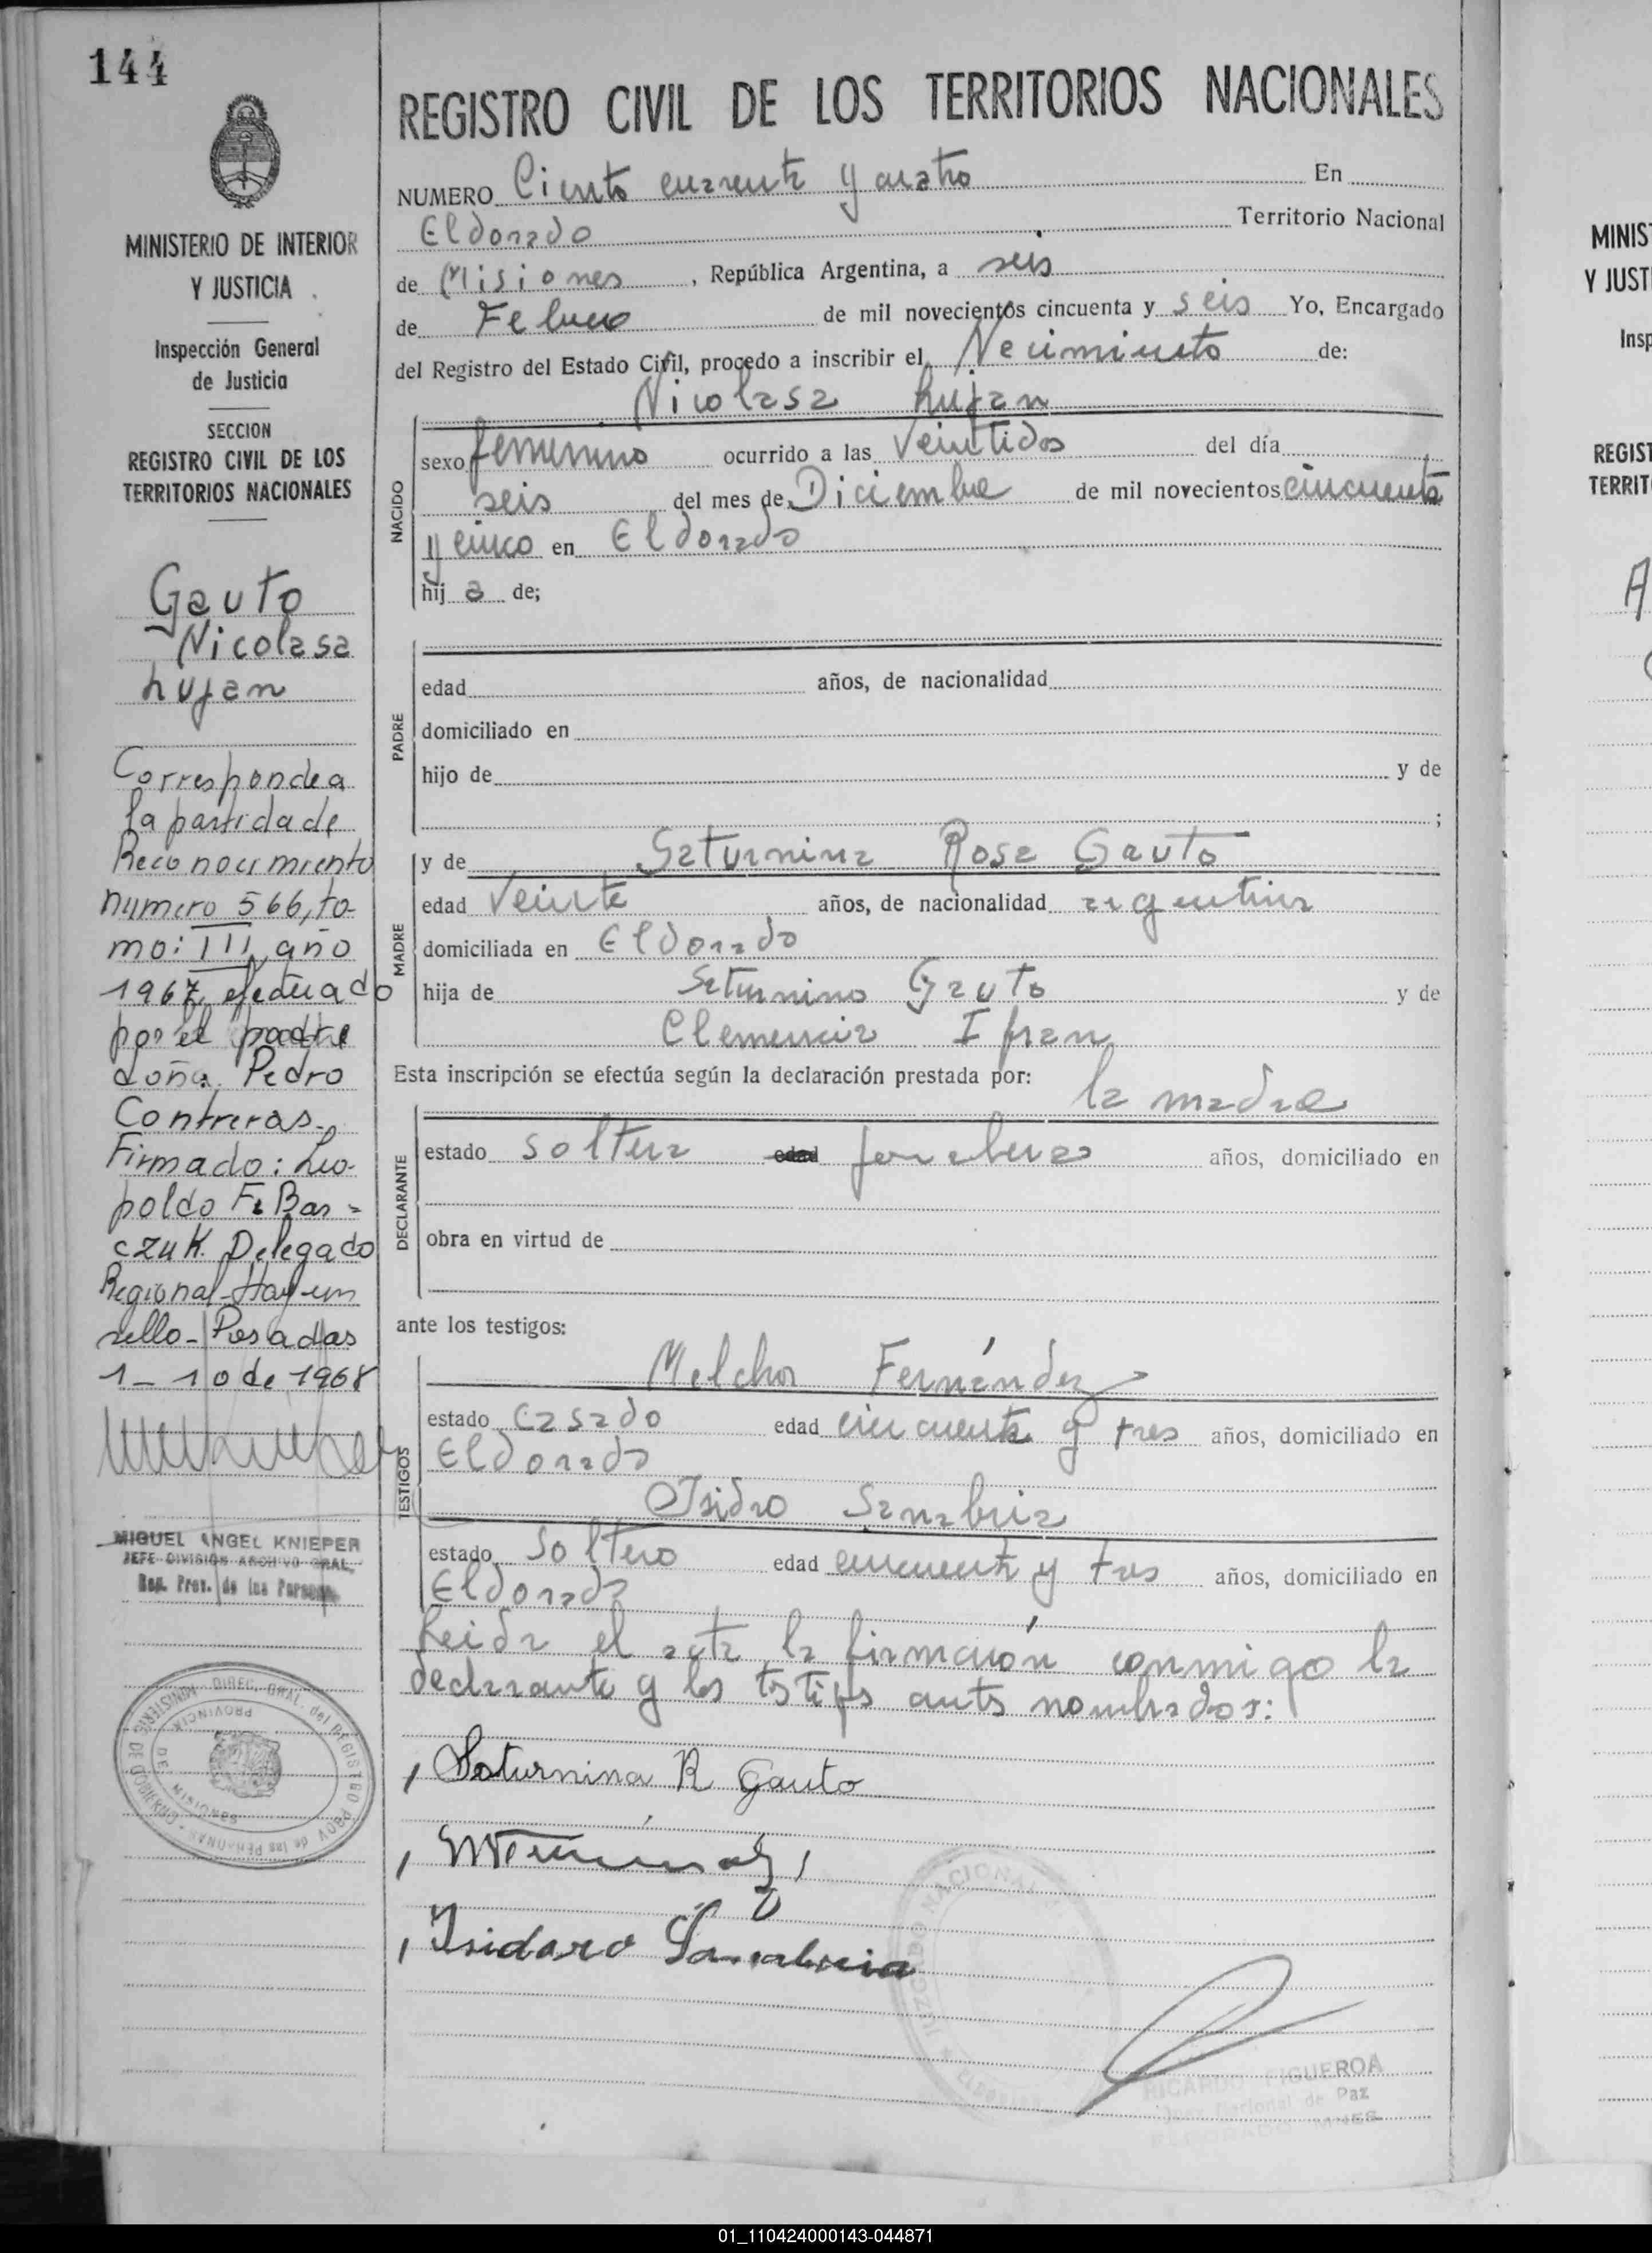 144
MINISTERIO DE INTERIOR
Y JUSTICIA
Inspección General
de Justicia
SECCION
REGISTRO CIVIL DE LOS
TERRITORIOS NACIONALES
Gauto
Nicolasa
Lujan
Corresponde a
la partida de
Reconocimiento
numero 566, to-
mo: III, año
1967, efectuado
por el padre
doña. Pedro
Contreras.-
Firmado: Leo-
poldo F. Bar=
czuk. Delegado
Regional-Hay un
sello-Posadas
1-10 de 1968
MIGUEL ANGEL KNIEPER
JEFE DIVISION ARCHIVO GRAL.
Reg. Prov. de las Personas
MINISTERIO DE GOBIERNO - DIREC. GRAL. del REGISTRO PROV. de las PERSONAS
PROVINCIA DE MISIONES
REGISTRO CIVIL DE LOS TERRITORIOS NACIONALES
NUMERO Ciento cuarenta y cuatro En
Eldorado Territorio Nacional
de Misiones, República Argentina, a seis
de Febrero de mil novecientos cincuenta y seis Yo, Encargado
del Registro del Estado Civil, procedo a inscribir el Nacimiento de:
Nicolasa Lujan
NACIDO
sexo femenino ocurrido a las Veintidos del día
seis del mes de Diciembre de mil novecientos cincuenta
y cinco en Eldorado
hij a de;
PADRE
edad años, de nacionalidad
domiciliado en
hijo de y de
;
MADRE
y de Saturnina Rosa Gauto
edad Veinte años, de nacionalidad argentina
domiciliada en Eldorado
hija de Saturnino Gauto y de
Clemencia Ifran
Esta inscripción se efectúa según la declaración prestada por:
la madre
DECLARANTE
estado soltera edad años, domiciliado en
obra en virtud de
ante los testigos:
TESTIGOS
Melchor Fernández
estado casado edad cincuenta y tres años, domiciliado en
Eldorado
Isidro Sanabria
estado soltero edad cincuenta y tres años, domiciliado en
Eldorado
Leida el acta, la firmarón conmigo la
declarante y los testigos antes nombrados:
Saturnina R Gauto
Isidoro Sanabria
JUZGADO NACIONAL
ELDORADO
RICARDO FIGUEROA
Juez Nacional de Paz
ELDORADO MNES.
MINIS
Y JUST
Insp
REGIST
TERRIT
A
01_110424000143-044871